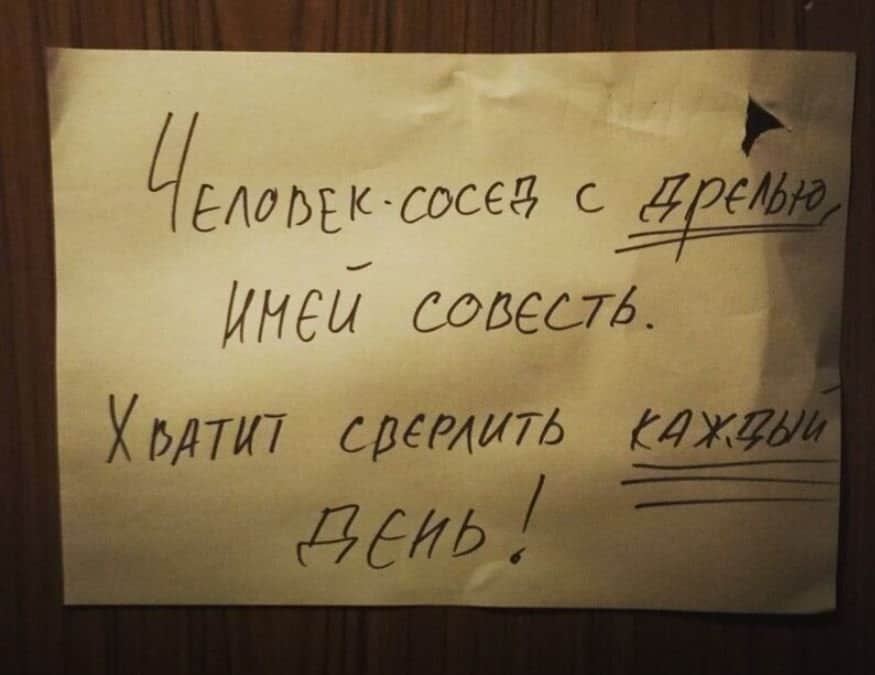 Человек-сосед с дрелью,
имей совесть.
Хватит сверлить каждый
день!